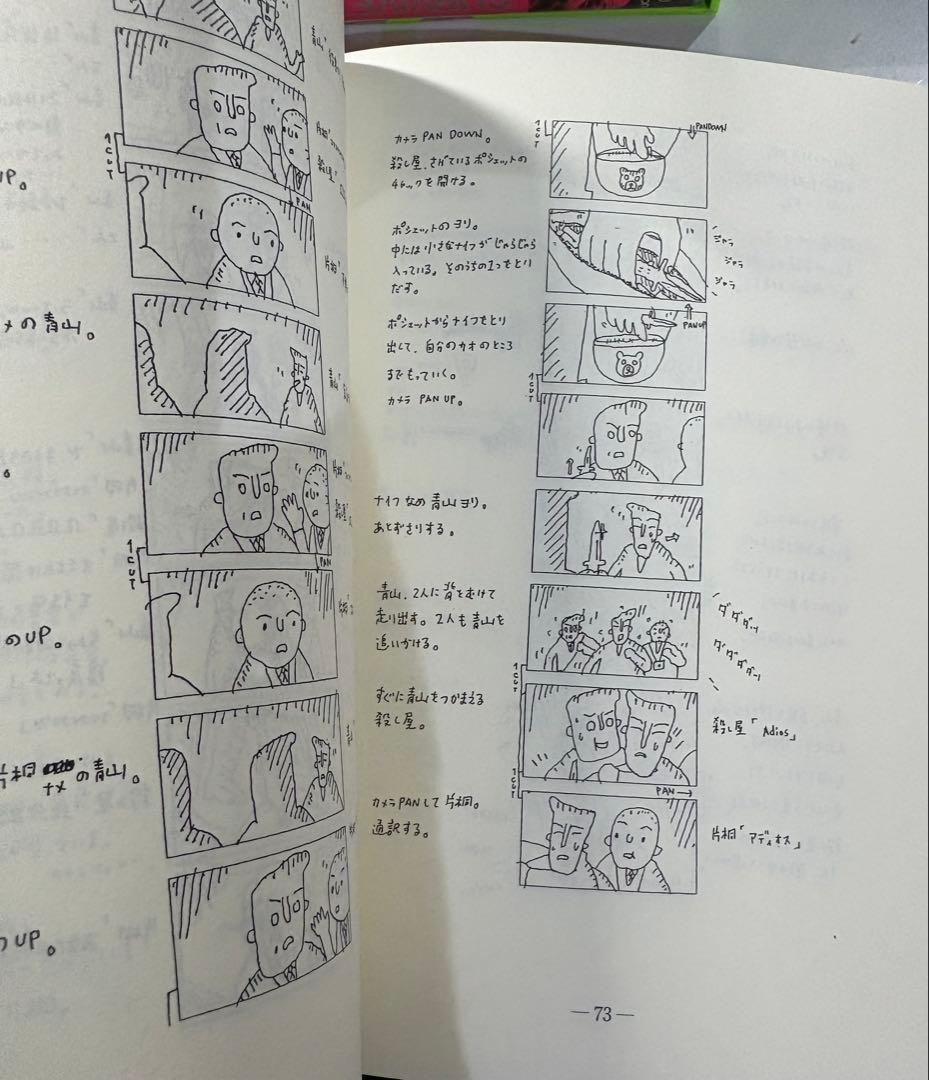 青山「
1CUT
UP。
殺し屋「
PAN
片桐「
メの青山。
青山「
片桐「
殺し屋「
1CUT
PAN
のUP。
片桐
ナメ
の青山。
UP。
カメラ PAN DOWN。
殺し屋、さげているポシェットの
チャックを開ける。
1CUT
PANDOWN
ポシェットのヨリ。
中には小さなナイフがじゃらじゃら
入っている。そのうちの1つをとり
だす。
ジャラ
ジャラ
ジャラ
ポシェットからナイフをとり
出して、自分のカオのところ
までもっていく。
カメラ PAN UP。
PANUP
1CUT
ナイフなめ青山ヨリ。
あとずさりする。
青山、2人に背をむけて
走り出す。2人も青山を
追いかける。
ダダダッ
ダダダダッ
すぐに青山をつかまえる
殺し屋。
1CUT
殺し屋「Adios」
カメラPANして片桐。
通訳する。
1CUT
PAN→
片桐「アディオス」
—73—